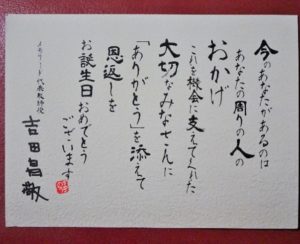 今のあなたがあるのは
あなたの周りの人の
おかげ
これを機会に支えてくれた
大切なみなさんに
「ありがとう」を添えて
恩返しを
お誕生日おめでとう
ございます
メモリード 代表取締役
吉田昌敬